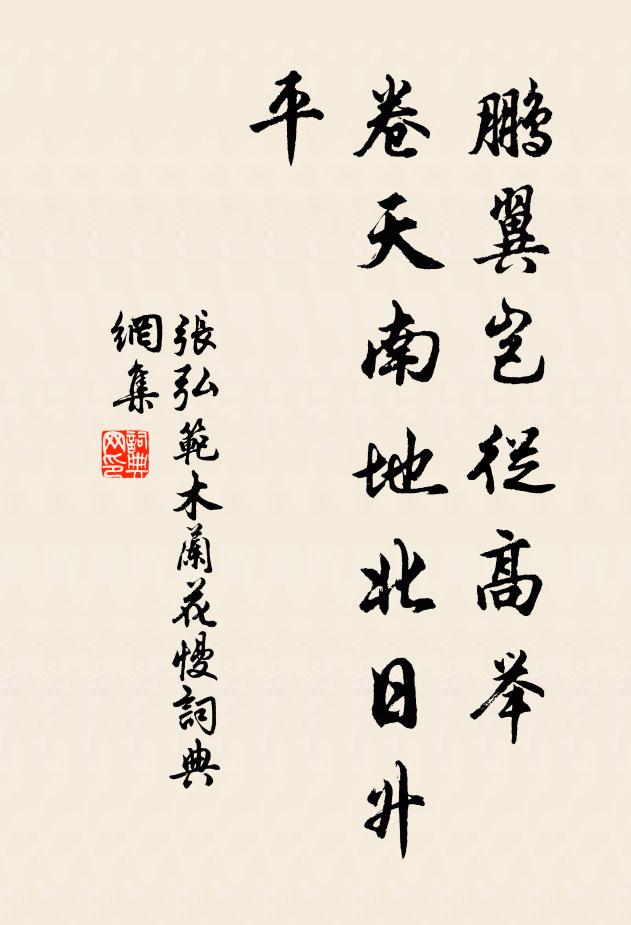 鵬翼岂從高举
卷天南地北日升
平
張弘範木蘭花慢詞典
網集
詞典
网印